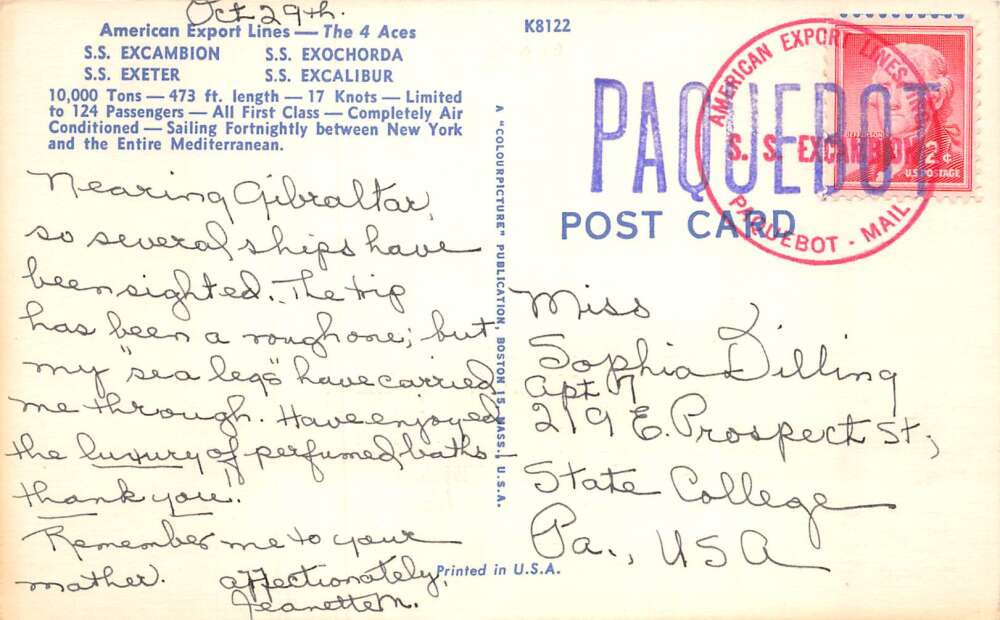 Oct 29th.
American Export Lines — The 4 Aces
S.S. EXCAMBION S.S. EXOCHORDA
S.S. EXETER S.S. EXCALIBUR
10,000 Tons — 473 ft. length — 17 Knots — Limited
to 124 Passengers — All First Class — Completely Air
Conditioned — Sailing Fortnightly between New York
and the Entire Mediterranean.
Nearing Gibraltar,
so several ships have
been sighted. The trip
has been a rough one; but
my "sea legs" have carried
me through. Have enjoyed
the luxury of perfumed baths —
thank you"
Remember me to your
mother. affectionately,
Jeanette M.
A "COLOURPICTURE" PUBLICATION, BOSTON 15, MASS., U.S.A.
K8122
PAQUEBOT
AMERICAN EXPORT LINES, INC.
S. S. EXCAMBION
PAQUEBOT - MAIL
JEFFERSON
2¢
U.S. POSTAGE
POST CARD
Miss
Sophia Dilling
Apt 7
219 E. Prospect St,
State College
Pa., USA
Printed in U.S.A.